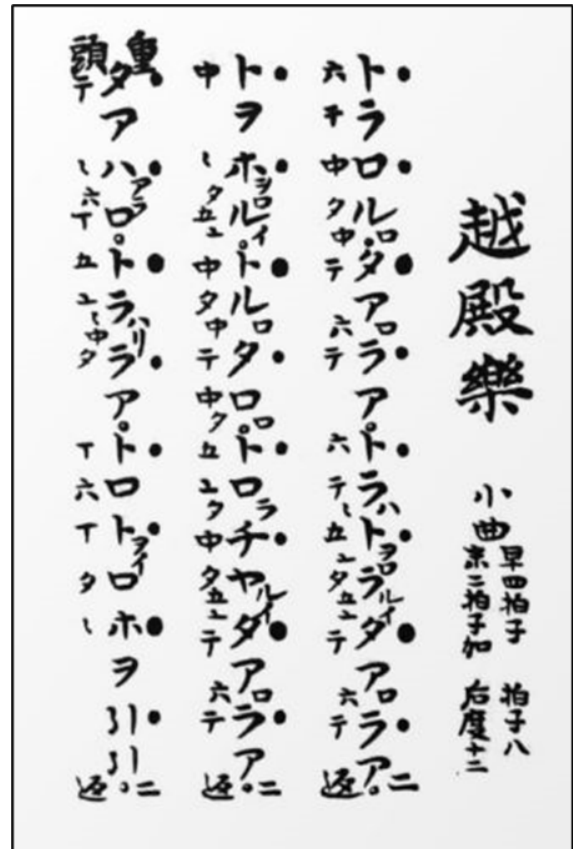 越殿樂
小曲
早四拍子 拍子八
末二拍子加 后度十二
トラロルロ。タアロラア。トラハトヲロラルイタアロラア。二返
六チ中タ中テ六テ六テ五ユタ五ユテ六テ
トヲホルヲロイ。トルロタロロ。トロラチヤルイタアロラア。二返
中タ五ユ中タ中テ中タ五ユタ中タ五ユテ六テ
重頭
タアハロアラ。トラハリラア。トロトヲイロホヲ引引。二返
テ六丁五ユ中タ丁六丁タ